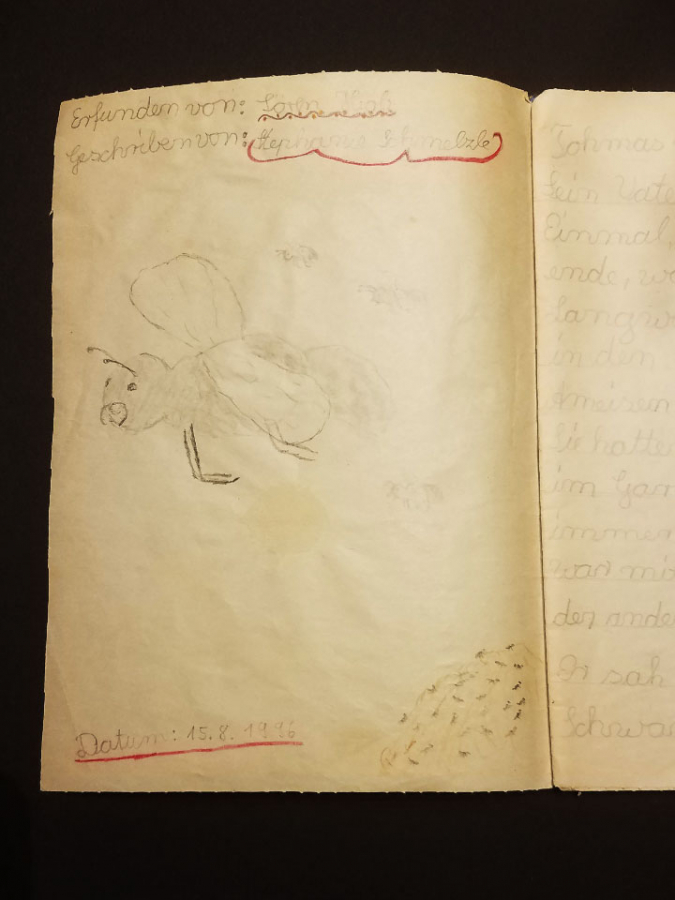 Erfunden von:
Geschrieben von: Stephanie Schmelzle
Datum: 15.8.1996
Tohmas
Sein Vate
Einmal,
ende, wa
Langw
in den
Ameisen
Sie hatte
im Gar
immer
war mi
der ande
Er sah
Schwa